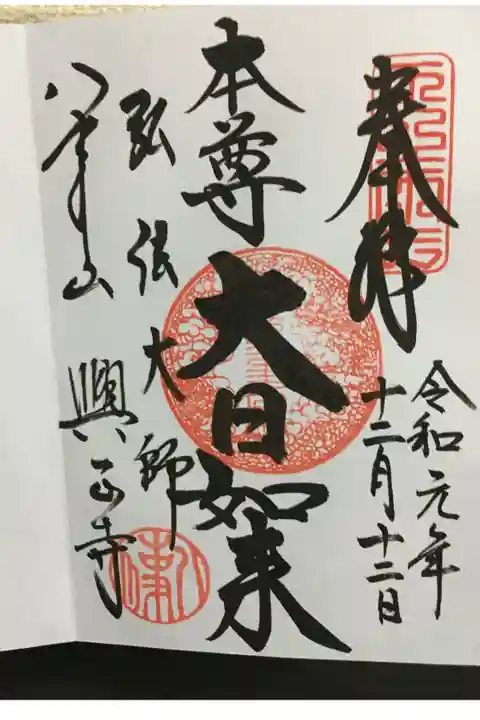 奉拝
令和元年
十二月十二日
本尊大日如来
弘法大師
八事山 興正寺